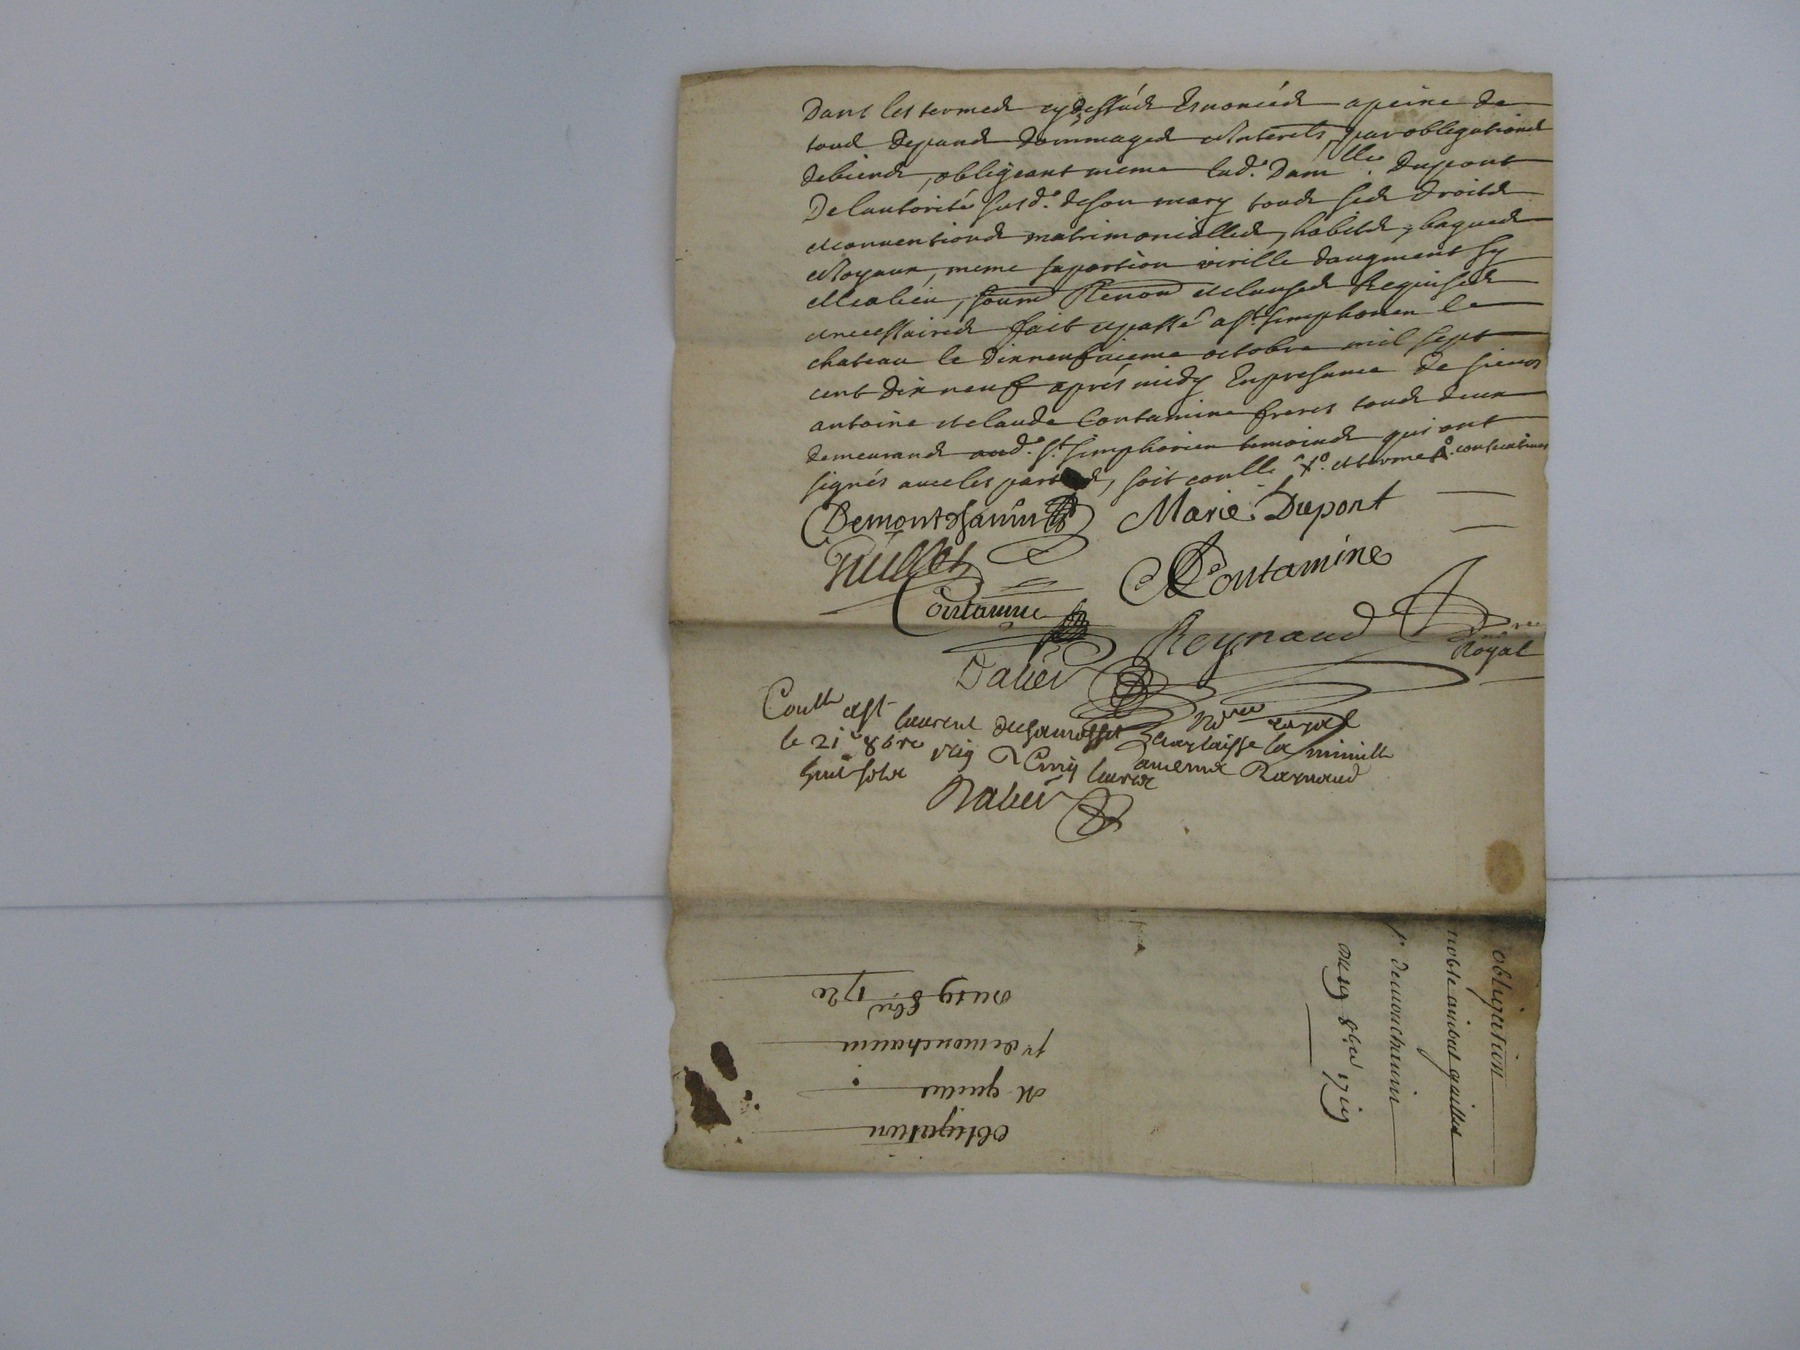 Dans les termes cy dessus Enoncés a peine de
tous depans dommages et Interets, par obligations
de biens, obligeant meme lad.e Dam.lle Dupont
De lautorité susd.e de son mary tous ses droits
et conventions matrimonialles, habits, bagues
et Joyaux, meme sa portion virille daugment sy
elle a lieu, soums Renon et clauses Requises
et necessaires fait et passé a St simphorien le
chateau le dixneufvieme octobre mil sept
cent dix neuf aprés midy En presance de sieurs
antoine et claude Contamine freres tous deux
demeurands aud.t St simphorien temoinds qui ont
signés avec les parties, soit conllé
Demontchanin Marie Dupont
Guillet
Contamine Contamine
Reynaud Nre
Royal
Dalier
Conllé a St laurent de chamosset
le 21e 8bre 1719 R Cinq livres
huit sols
Dalier
Nore royal
Jay laisse la minutte
Raynaud
obligation
noble guillet
sr demonchanin
du 19 8bre 1719
obligation
M guillet
sr demonchanin
du 19 8bre 1720